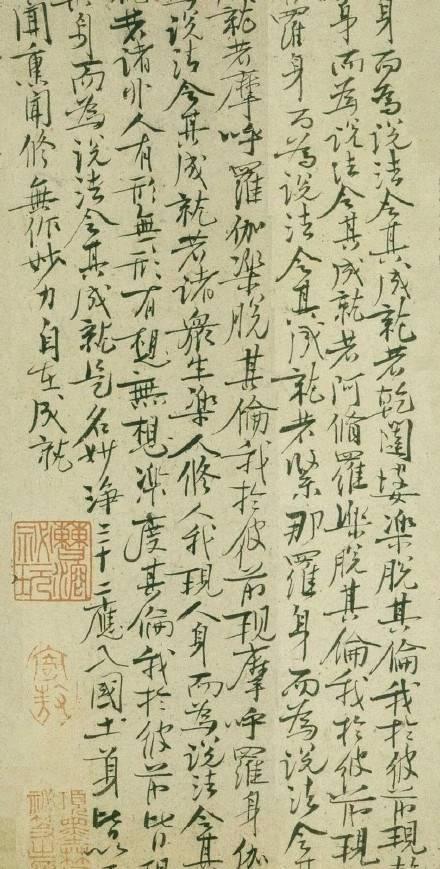 身而為說法令其成就若乾闥婆樂脫其倫我於彼前現乾
身而為說法令其成就若阿脩羅樂脫其倫我於彼前現
羅身而為說法令其成就若緊那羅身而為說法令其
就若摩呼羅伽樂脫其倫我於彼前現摩呼羅身伽
為說法令其成就若諸衆生樂人修人我現人身而為說法令其
若諸非人有形無形有想無想樂度其倫我於彼前皆現
其身而為說法令其成就是名妙淨三十二應入國土身皆以
聞熏聞修無作妙力自在成就